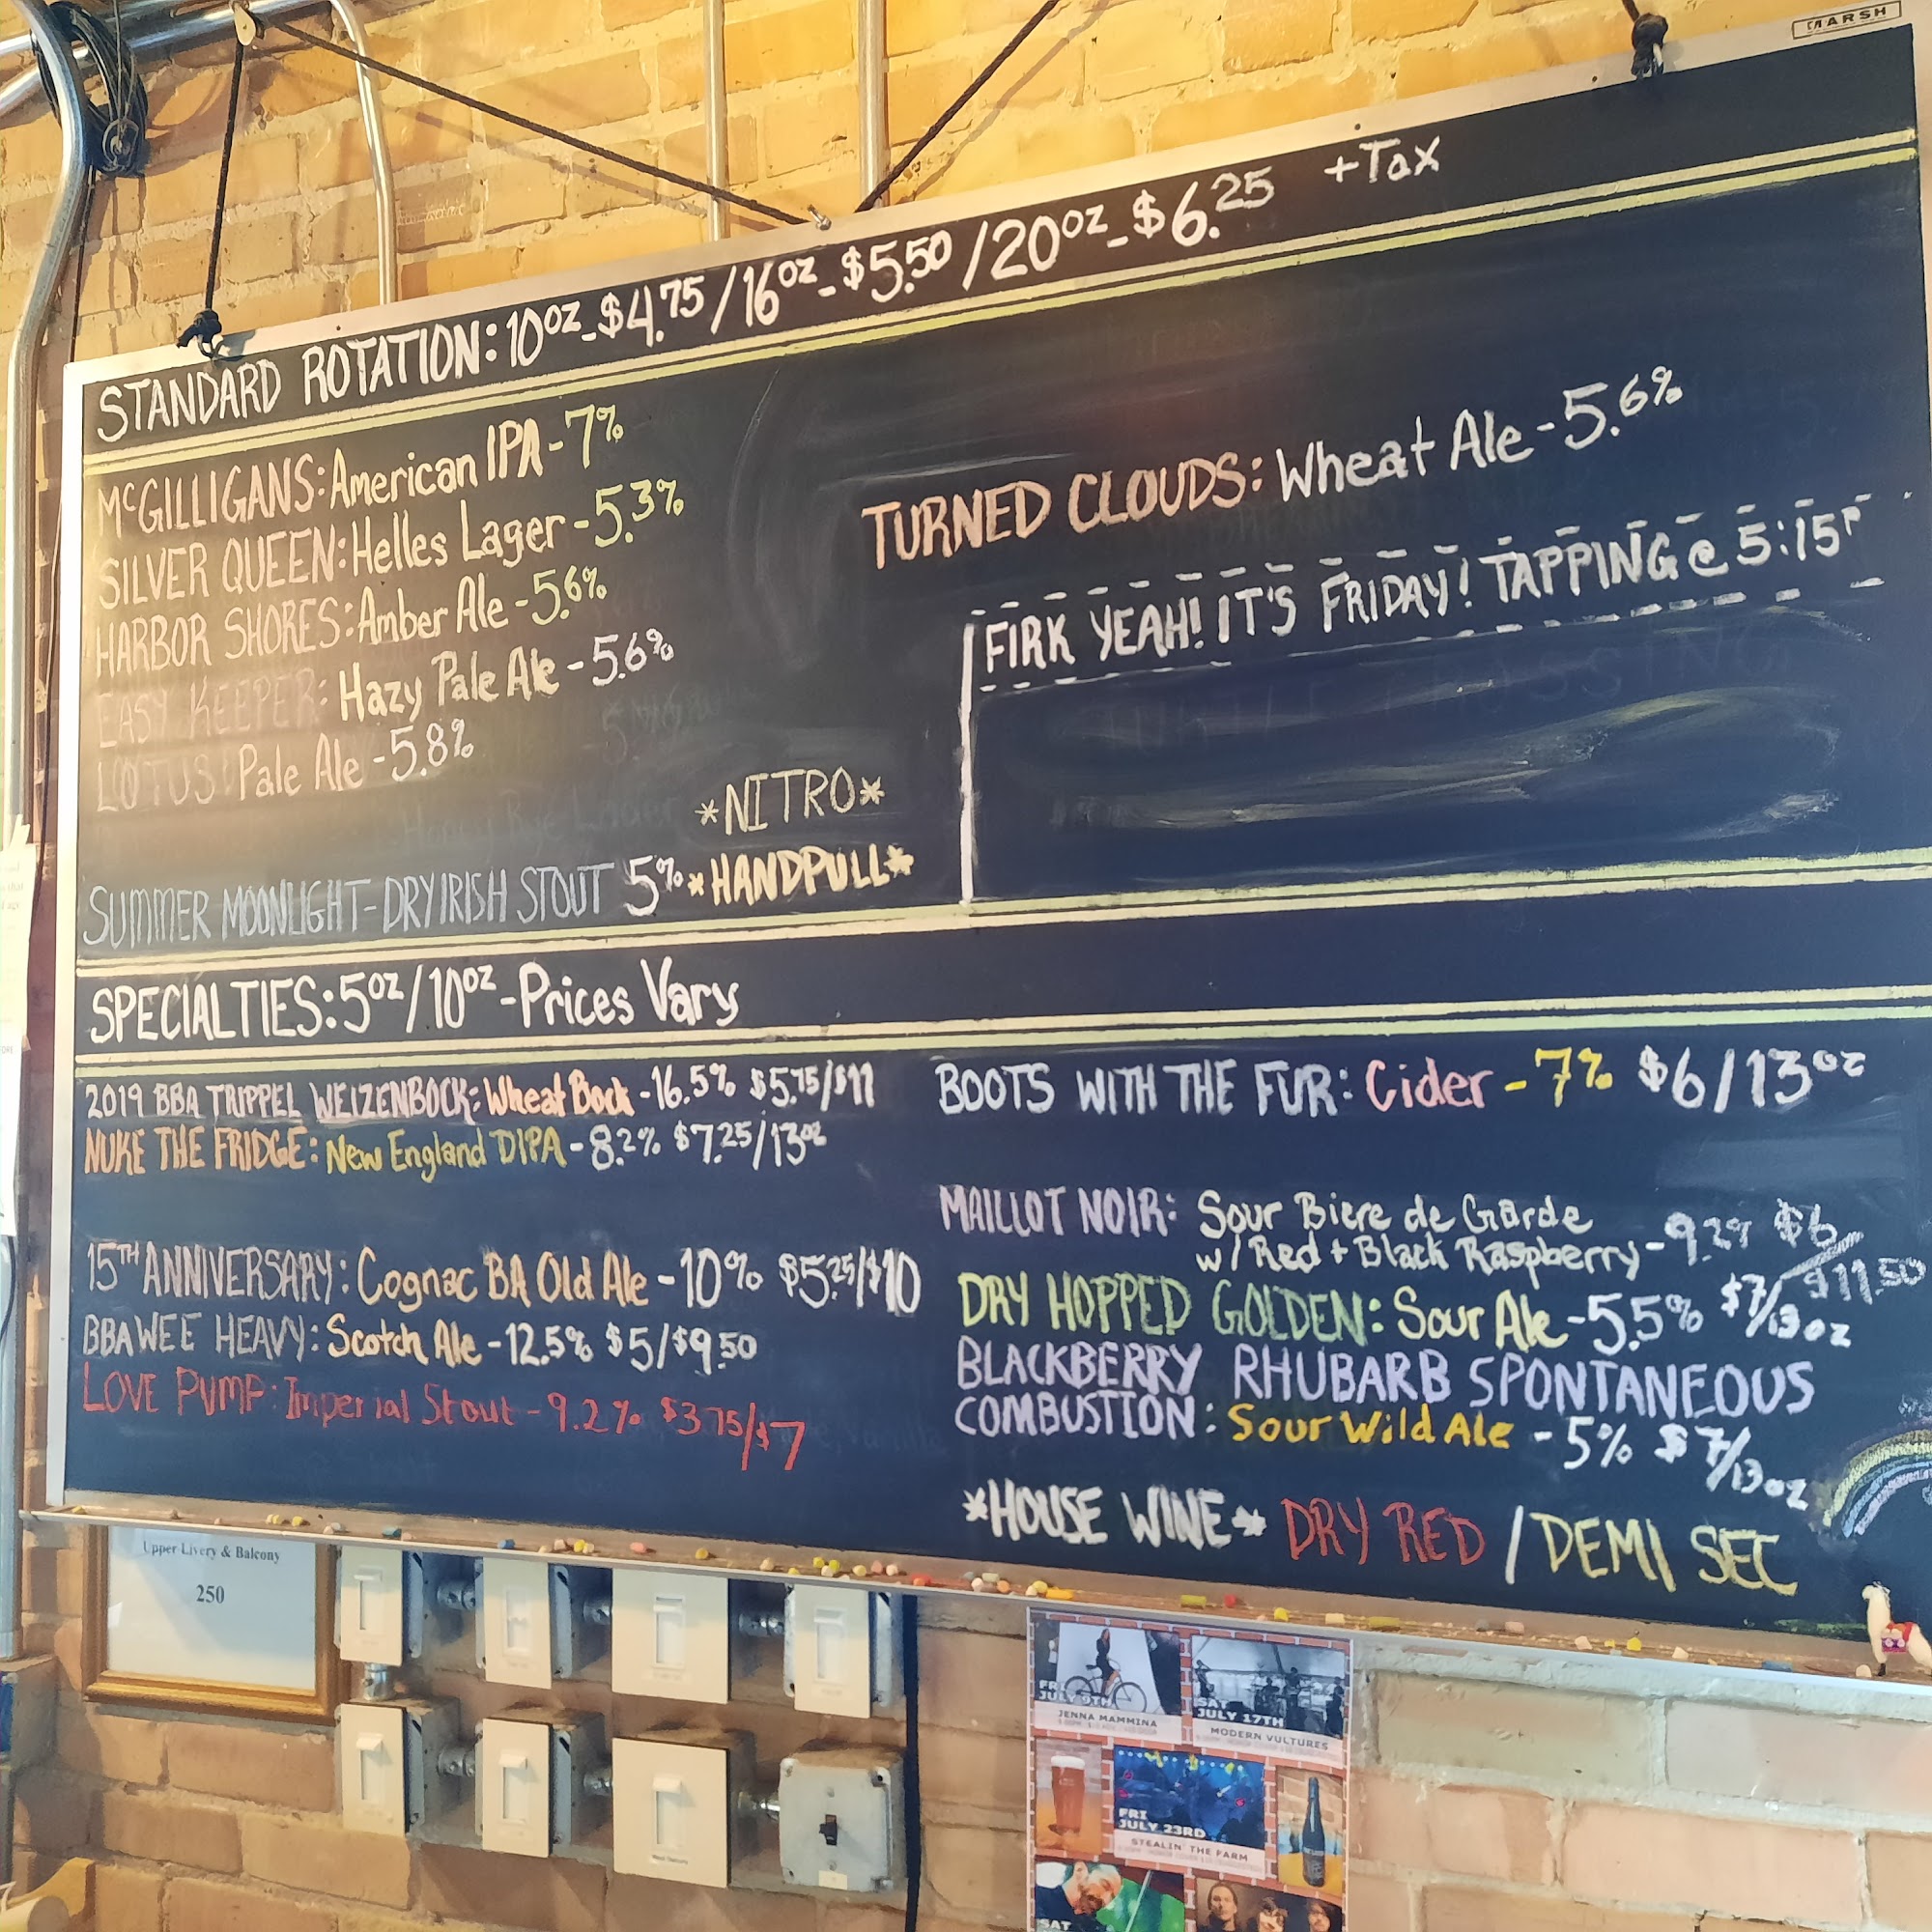 MARSH
STANDARD ROTATION: 10oz - $4.75 / 16oz - $5.50 / 20oz - $6.25 +Tax
McGILLIGANS: American IPA - 7%
SILVER QUEEN: Helles Lager - 5.3%
HARBOR SHORES: Amber Ale - 5.6%
EASY KEEPER: Hazy Pale Ale - 5.6%
LOTUS: Pale Ale - 5.8%
*NITRO*
SUMMER MOONLIGHT - DRY IRISH STOUT 5% *HANDPULL*
TURNED CLOUDS: Wheat Ale - 5.6%
FIRK YEAH! IT'S FRIDAY! TAPPING @ 5:15P
SPECIALTIES: 5oz / 10oz - Prices Vary
2019 BBA TRIPPEL WEIZENBOCK: Wheat Bock - 16.5% $5.75/$11
NUKE THE FRIDGE: New England DIPA - 8.2% $7.25/13oz
15TH ANNIVERSARY: Cognac BA Old Ale - 10% $5.25/$10
BBA WEE HEAVY: Scotch Ale - 12.5% $5/$9.50
LOVE PUMP: Imperial Stout - 9.2% $3.75/$7
BOOTS WITH THE FUR: Cider - 7% $6/13oz
MAILLOT NOIR: Sour Biere de Garde
w/ Red + Black Raspberry - 9.2% $6/$11.50
DRY HOPPED GOLDEN: Sour Ale - 5.5% $7/13oz
BLACKBERRY RHUBARB SPONTANEOUS
COMBUSTION: Sour Wild Ale - 5% $7/13oz
*HOUSE WINE* DRY RED / DEMI SEC
Upper Livery & Balcony
250
FRI
JULY 9TH
JENNA MAMMINA
SAT
JULY 17TH
MODERN VULTURES
FRI
JULY 23RD
STEALIN' THE FARM
SAT